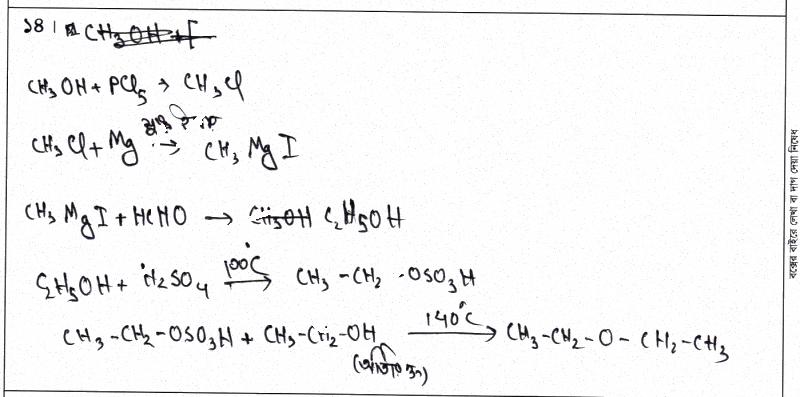 ১৪। CH3OH + [
CH3OH + PCl5 → CH3Cl
CH3Cl + Mg শুষ্ক ইথার → CH3MgI
CH3MgI + HCHO → CH3OH C2H5OH
C2H5OH + H2SO4 100°C → CH3-CH2-OSO3H
CH3-CH2-OSO3H + CH3-CH2-OH 140°C → CH3-CH2-O-CH2-CH3
(অতিরিক্ত)
বক্সের বাইরে লেখা বা দাগ দেয়া নিষেধ